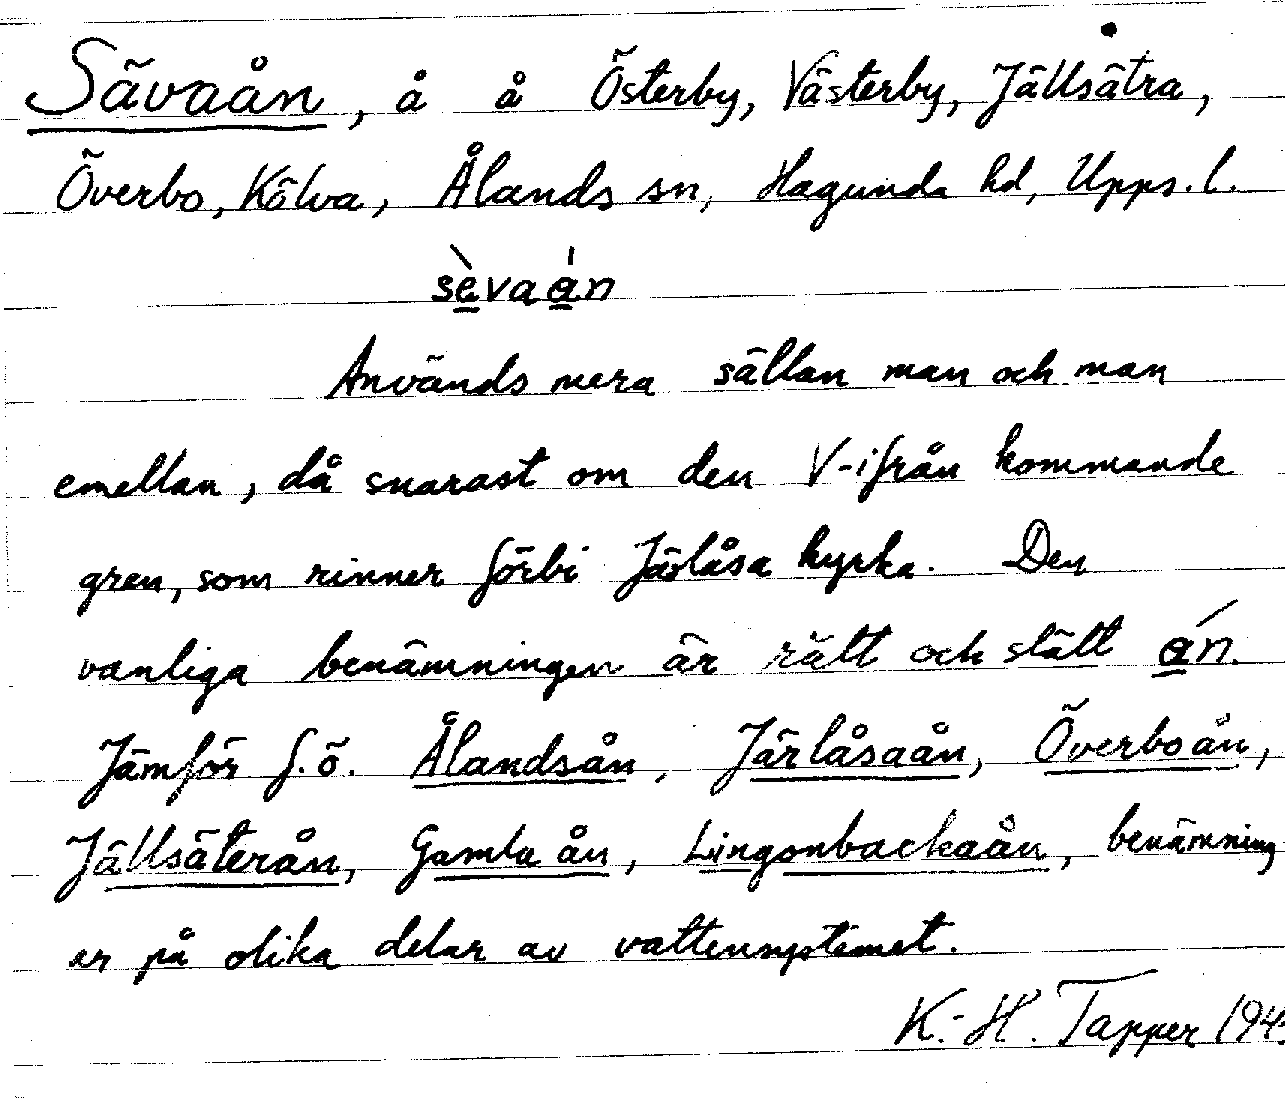 Sävaån, å å Österby, Västerby, Jällsätra,
Överbo, Kölva, Ålands sn, Hagunda hd, Upps. l.
sèvaán
Används mera sällan man och man
emellan, då snarast om den V-ifrån kommande
gren, som rinner förbi Järlåsa kyrka. Den
vanliga benämningen är rätt och slätt án.
Jämför f.ö. Ålandsån, Järlåsaån, Överboån,
Jällsäterån, Gamla ån, Lingonbackaån, benämning
er på olika delar av vattensystemet.
K.-H. Tapper 194